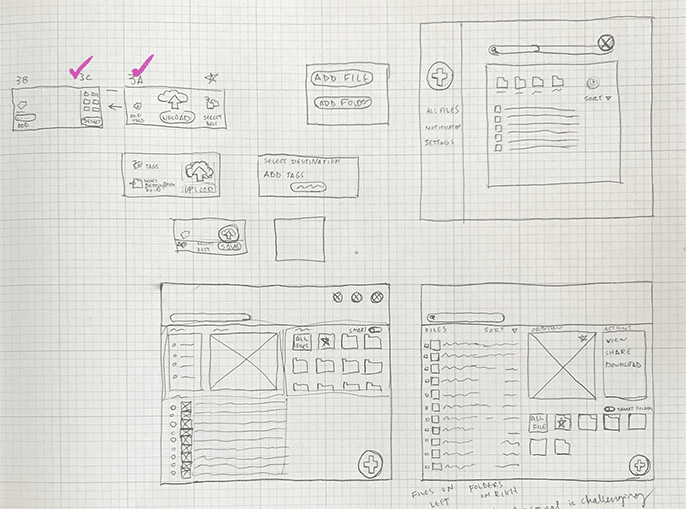 3B
3C
3A
ADD
SELECT
ADD
TAGS
UPLOAD
SELECT
DEST
ADD FILE
ADD FOLDER
SORT
ALL FILES
NOTIFICATION
SETTINGS
TAGS
SELECT
DESTINATION
UPLOAD
SELECT DESTINATION
ADD TAGS
SELECT
DEST
SAVE
SMART
ALL
FILE
FILES
SORT
PREVIEW
ACTIONS
VIEW
SHARE
DOWNLOAD
SMART FOLDER
ALL
FILE
FILES ON
LEFT
FOLDERS
ON RIGHT
is challenging